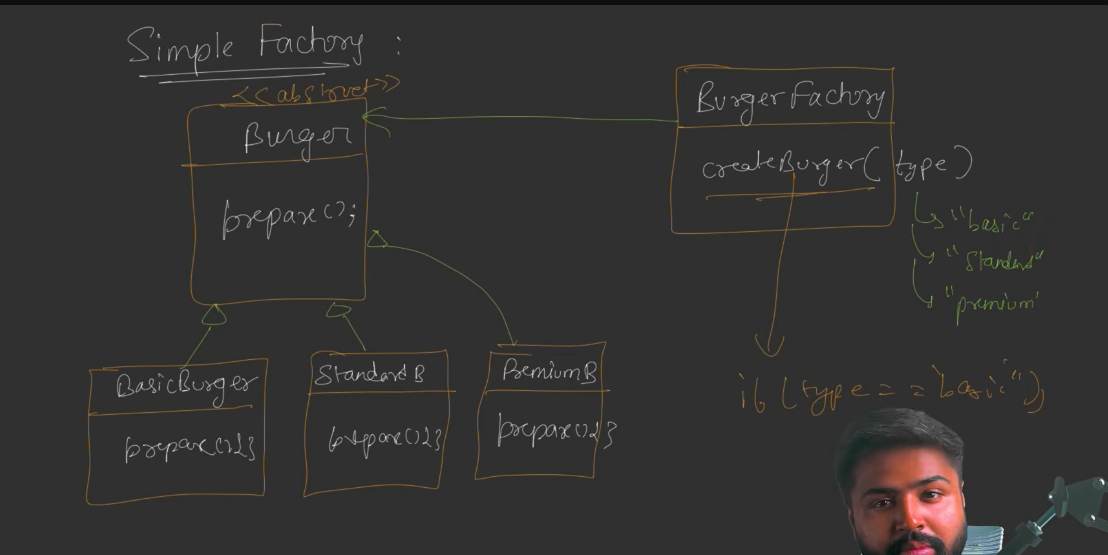 Simple Factory :
<<abstract>>
Burger
prepare();
BurgerFactory
createBurger( type)
"basic"
"Standard"
"premium"
BasicBurger
prepare(){}
StandardB
prepare(){}
PremiumB
prepare(){}
if (type == "basic"){